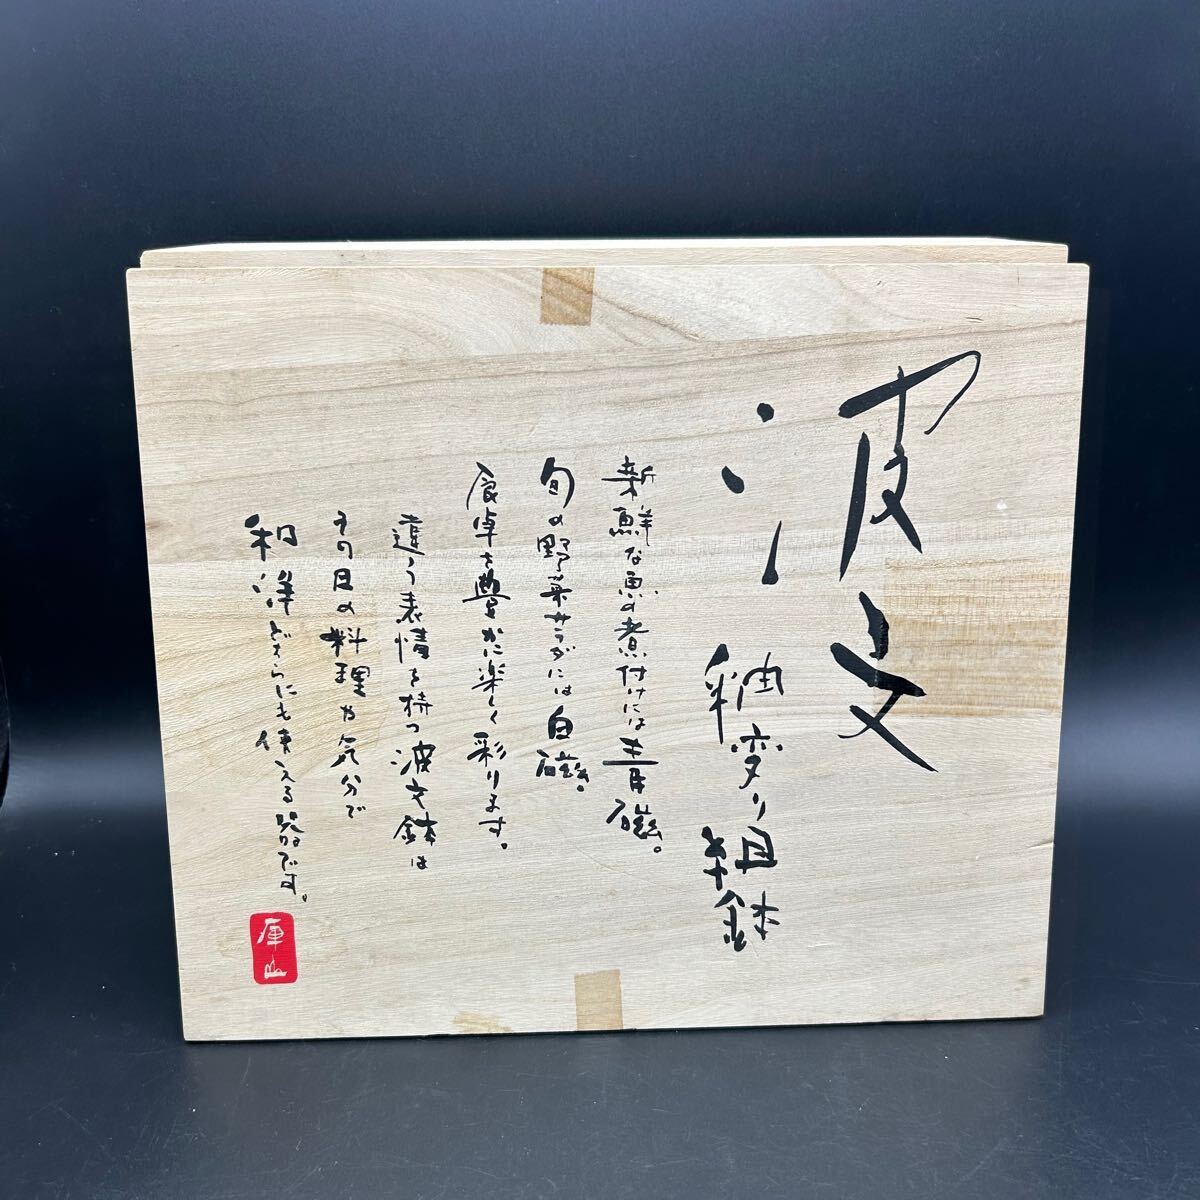 波文
釉変り組鉢
新鮮な魚の煮付けには青磁。
旬の野菜サラダには白磁。
食卓を豊かに楽しく彩ります。
違う表情を持つ波文鉢は
その日の料理や気分で
和洋どちらにも使える器です。
庫山